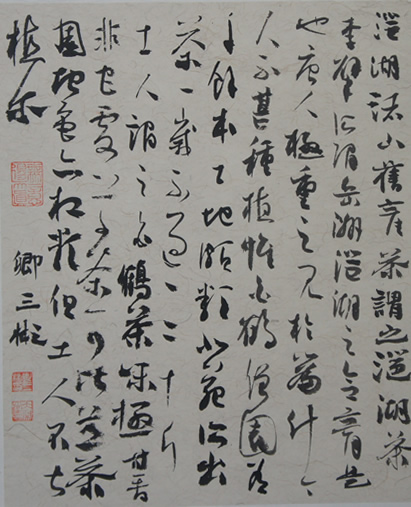 灉湖諸山舊產茶謂之灉湖茶
李肇所謂岳州灉湖之含膏
也唐人極重之見於篇什今
人不甚種植惟白鶴僧園有
千餘本土地頗類北苑所出
茶一歲不過一二十斤
土人謂之白鶴茶味極甘香
非他處草茶可比並茶
園地色亦相類但土人不甚
植爾
卿三